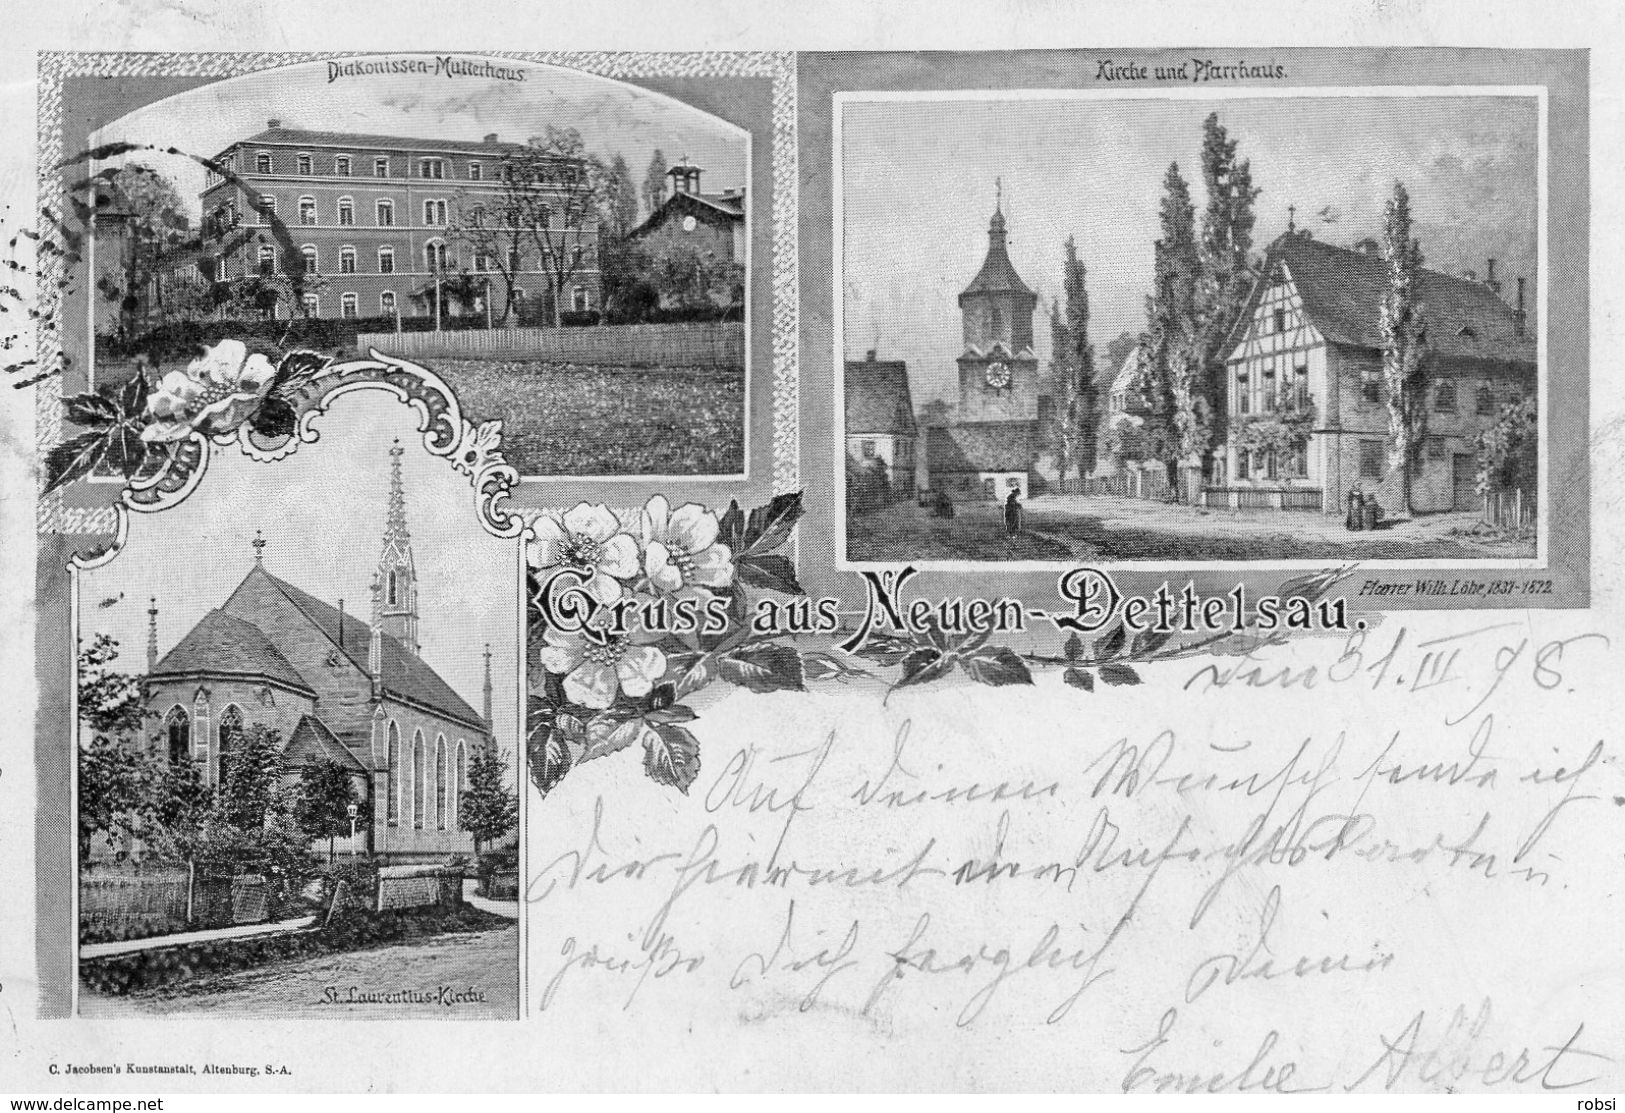 Diakonissen-Mutterhaus.
Kirche und Pfarrhaus.
Pfarrer Wilh. Löhe, 1837-1872.
Gruss aus Neuen-Dettelsau.
den 31. III. 98.
Auf deinen Wunsch sende ich
Dir hiermit eine Ansichtskarte u.
grüße Dich herzlich Deine
Emilie Albert
St. Laurentius-Kirche
C. Jacobsen's Kunstanstalt, Altenburg, S.-A.
delcampe.net
robsi